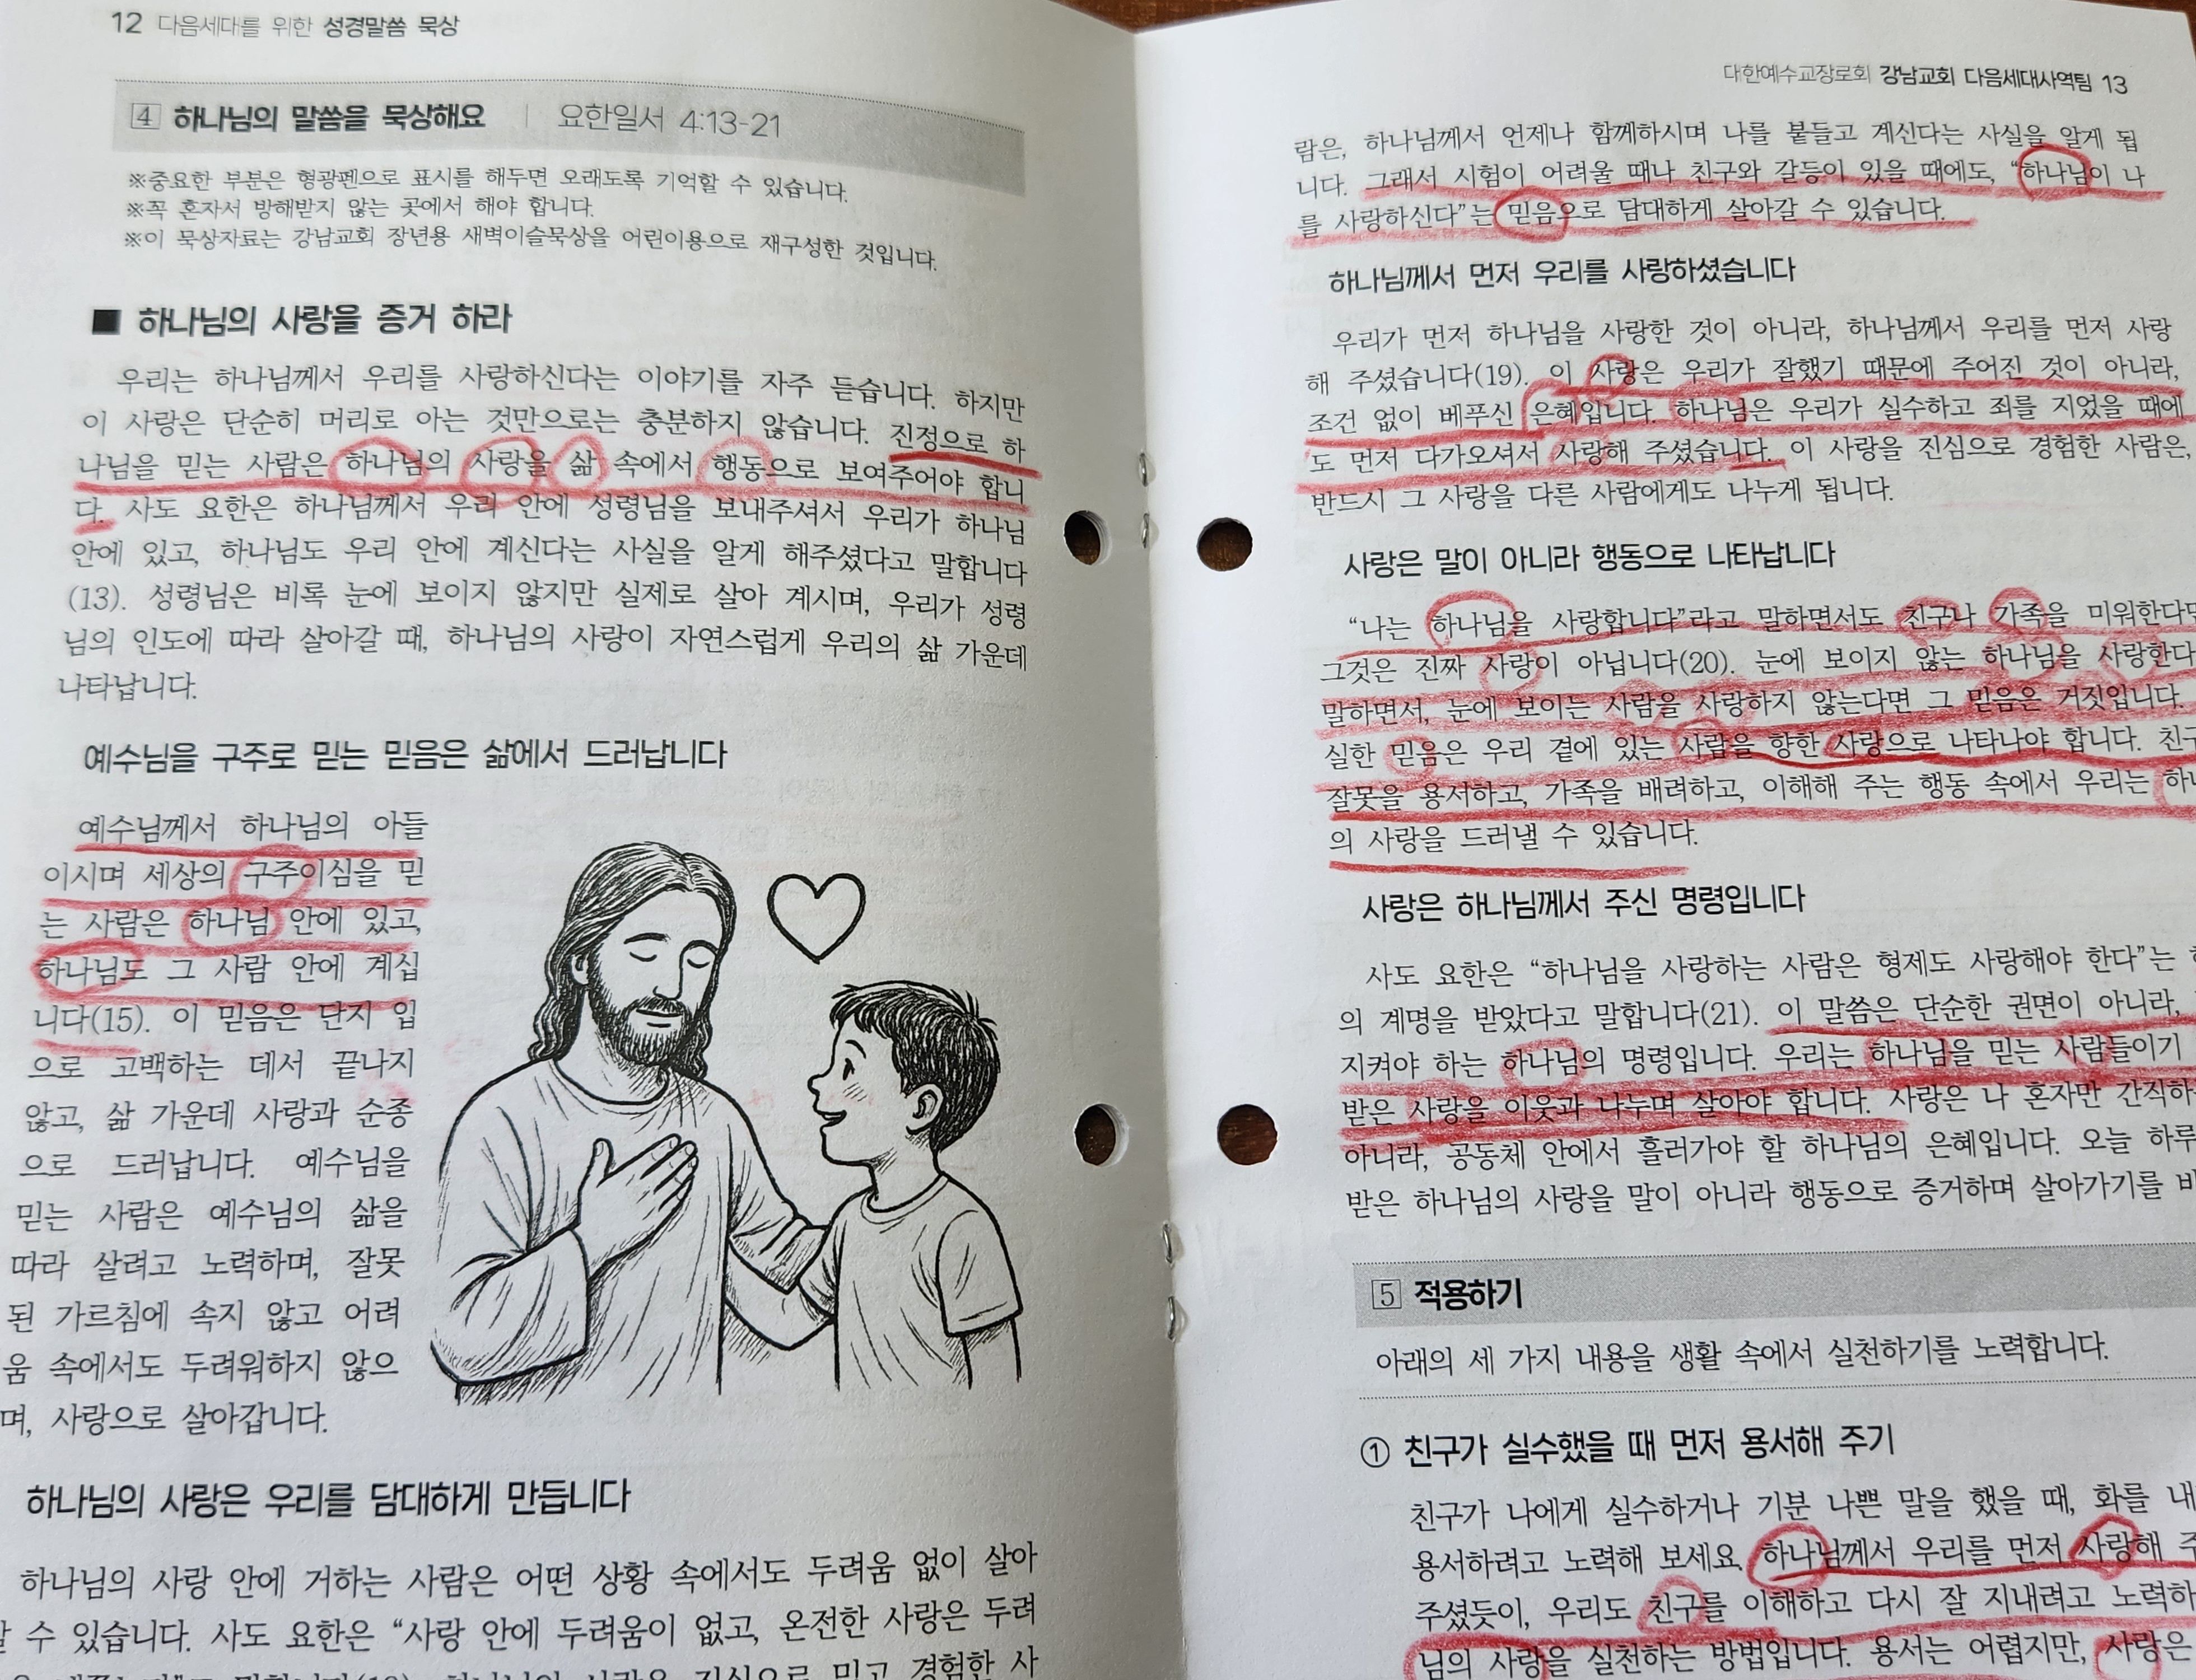 12 다음세대를 위한 성경말씀 묵상
4 하나님의 말씀을 묵상해요 | 요한일서 4:13-21
※중요한 부분은 형광펜으로 표시를 해두면 오래도록 기억할 수 있습니다.
※꼭 혼자서 방해받지 않는 곳에서 해야 합니다.
※이 묵상자료는 강남교회 장년용 새벽이슬묵상을 어린이용으로 재구성한 것입니다.
■ 하나님의 사랑을 증거 하라
우리는 하나님께서 우리를 사랑하신다는 이야기를 자주 듣습니다. 하지만
이 사랑은 단순히 머리로 아는 것만으로는 충분하지 않습니다. 진정으로 하
나님을 믿는 사람은 하나님의 사랑을 삶 속에서 행동으로 보여주어야 합니
다. 사도 요한은 하나님께서 우리 안에 성령님을 보내주셔서 우리가 하나님
안에 있고, 하나님도 우리 안에 계신다는 사실을 알게 해주셨다고 말합니다
(13). 성령님은 비록 눈에 보이지 않지만 실제로 살아 계시며, 우리가 성령
님의 인도에 따라 살아갈 때, 하나님의 사랑이 자연스럽게 우리의 삶 가운데
나타납니다.
예수님을 구주로 믿는 믿음은 삶에서 드러납니다
예수님께서 하나님의 아들
이시며 세상의 구주이심을 믿
는 사람은 하나님 안에 있고,
하나님도 그 사람 안에 계십
니다(15). 이 믿음은 단지 입
으로 고백하는 데서 끝나지
않고, 삶 가운데 사랑과 순종
으로 드러납니다. 예수님을
믿는 사람은 예수님의 삶을
따라 살려고 노력하며, 잘못
된 가르침에 속지 않고 어려
움 속에서도 두려워하지 않으
며, 사랑으로 살아갑니다.
하나님의 사랑은 우리를 담대하게 만듭니다
하나님의 사랑 안에 거하는 사람은 어떤 상황 속에서도 두려움 없이 살아
수 있습니다. 사도 요한은 “사랑 안에 두려움이 없고, 온전한 사랑은 두려
하나님의 사랑을 진심으로 믿고 경험한 사
대한예수교장로회 강남교회 다음세대사역팀 13
람은, 하나님께서 언제나 함께하시며 나를 붙들고 계신다는 사실을 알게 됩
니다. 그래서 시험이 어려울 때나 친구와 갈등이 있을 때에도, “하나님이 나
를 사랑하신다”는 믿음으로 담대하게 살아갈 수 있습니다.
하나님께서 먼저 우리를 사랑하셨습니다
우리가 먼저 하나님을 사랑한 것이 아니라, 하나님께서 우리를 먼저 사랑
해 주셨습니다(19). 이 사랑은 우리가 잘했기 때문에 주어진 것이 아니라,
조건 없이 베푸신 은혜입니다. 하나님은 우리가 실수하고 죄를 지었을 때에
도 먼저 다가오셔서 사랑해 주셨습니다. 이 사랑을 진심으로 경험한 사람은,
반드시 그 사랑을 다른 사람에게도 나누게 됩니다.
사랑은 말이 아니라 행동으로 나타납니다
“나는 하나님을 사랑합니다”라고 말하면서도 친구나 가족을 미워한다면
그것은 진짜 사랑이 아닙니다(20). 눈에 보이지 않는 하나님을 사랑한다
말하면서, 눈에 보이는 사람을 사랑하지 않는다면 그 믿음은 거짓입니다.
실한 믿음은 우리 곁에 있는 사람을 향한 사랑으로 나타나야 합니다. 친구
잘못을 용서하고, 가족을 배려하고, 이해해 주는 행동 속에서 우리는
의 사랑을 드러낼 수 있습니다.
사랑은 하나님께서 주신 명령입니다
사도 요한은 “하나님을 사랑하는 사람은 형제도 사랑해야 한다”는
의 계명을 받았다고 말합니다(21). 이 말씀은 단순한 권면이 아니라,
지켜야 하는 하나님의 명령입니다. 우리는 하나님을 믿는 사람들이기
받은 사랑을 이웃과 나누며 살아야 합니다. 사랑은 나 혼자만 간직하
아니라, 공동체 안에서 흘러가야 할 하나님의 은혜입니다. 오늘 하루
받은 하나님의 사랑을 말이 아니라 행동으로 증거하며 살아가기를
5 적용하기
아래의 세 가지 내용을 생활 속에서 실천하기를 노력합니다.
① 친구가 실수했을 때 먼저 용서해 주기
친구가 나에게 실수하거나 기분 나쁜 말을 했을 때, 화를 내
용서하려고 노력해 보세요. 하나님께서 우리를 먼저 사랑해 주
주셨듯이, 우리도 친구를 이해하고 다시 잘 지내려고 노력하
님의 사랑을 실천하는 방법입니다. 용서는 어렵지만, 사랑은